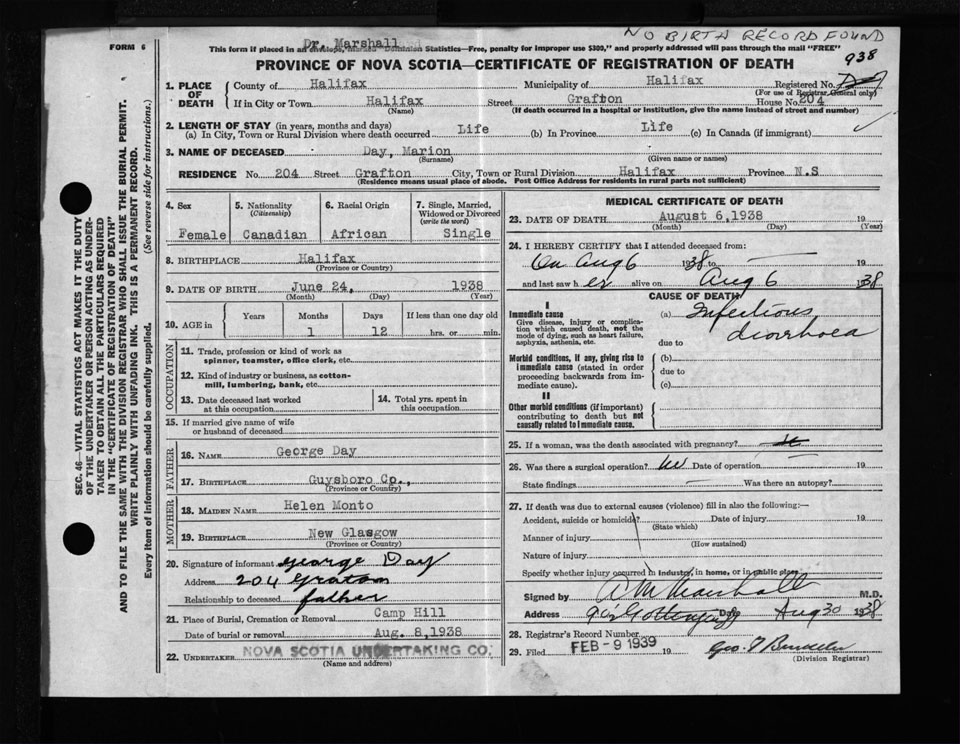 NO BIRTH RECORD FOUND
Dr. Marshall
FORM 6
This form if placed in an envelope, marked "Dominion Statistics—Free, penalty for improper use $300," and properly addressed will pass through the mail "FREE"
PROVINCE OF NOVA SCOTIA—CERTIFICATE OF REGISTRATION OF DEATH
938
1. PLACE OF DEATH
County of Halifax Municipality of Halifax Registered No.
(For use of Registrar General only)
If in City or Town Halifax Street Grafton House No. 204
(Name) (If death occurred in a hospital or institution, give the name instead of street and number)
2. LENGTH OF STAY (in years, months and days)
(a) In City, Town or Rural Division where death occurred Life (b) In Province Life (c) In Canada (if immigrant)
3. NAME OF DECEASED Day, Marion
(Surname) (Given name or names)
RESIDENCE No. 204 Street Grafton City, Town or Rural Division Halifax Province N.S
(Residence means usual place of abode. Post Office Address for residents in rural parts not sufficient)
4. Sex
Female
5. Nationality
(Citizenship)
Canadian
6. Racial Origin
African
7. Single, Married, Widowed or Divorced
(write the word)
Single
8. BIRTHPLACE Halifax
(Province or Country)
9. DATE OF BIRTH June 24, 1938
(Month) (Day) (Year)
10. AGE in
Years Months Days If less than one day old
1 12 hrs. or min.
OCCUPATION
11. Trade, profession or kind of work as
spinner, teamster, office clerk, etc.
12. Kind of industry or business, as cotton-
mill, lumbering, bank, etc.
13. Date deceased last worked
at this occupation
14. Total yrs. spent in
this occupation
15. If married give name of wife
or husband of deceased
FATHER
16. NAME George Day
17. BIRTHPLACE Guysboro Co.,
(Province or Country)
MOTHER
18. MAIDEN NAME Helen Monto
19. BIRTHPLACE New Glasgow
(Province or Country)
20. Signature of informant George Day
Address 204 Gratan
Relationship to deceased father
21. Place of Burial, Cremation or Removal Camp Hill
Date of burial or removal Aug. 8,1938
22. UNDERTAKER NOVA SCOTIA UNDERTAKING CO.
(Name and address)
MEDICAL CERTIFICATE OF DEATH
23. DATE OF DEATH August 6,1938 19
(Month) (Day) (Year)
24. I HEREBY CERTIFY that I attended deceased from:
On Aug 6 1938 to 19
and last saw her alive on Aug 6 1938
CAUSE OF DEATH
I
Immediate cause
Give disease, injury or complica-
tion which caused death, not the
mode of dying, such as heart failure,
asphyxia, asthenia, etc.
(a) Infectious
diorrhoea
due to
Morbid conditions, if any, giving rise to
immediate cause (stated in order
proceeding backwards from im-
mediate cause).
(b)
due to
(c)
II
Other morbid conditions (if important)
contributing to death but not
causally related to immediate cause.
25. If a woman, was the death associated with pregnancy?
26. Was there a surgical operation? no Date of operation 19
State findings Was there an autopsy?
27. If death was due to external causes (violence) fill in also the following:—
Accident, suicide or homicide? Date of injury 19
(State which)
Manner of injury
(How sustained)
Nature of injury
Specify whether injury occurred in industry, in home, or in public place
Signed by A M Marshall M.D.
Address Gottengen Date Aug 30 1938
28. Registrar's Record Number
29. Filed FEB - 9 1939 19
(Division Registrar)
SEC. 46—VITAL STATISTICS ACT MAKES IT THE DUTY
OF THE UNDERTAKER OR PERSON ACTING AS UNDER-
TAKER TO OBTAIN ALL THE PARTICULARS REQUIRED
IN THE "CERTIFICATE OF REGISTRATION OF DEATH"
AND TO FILE THE SAME WITH THE DIVISION REGISTRAR WHO SHALL ISSUE THE BURIAL PERMIT.
WRITE PLAINLY WITH UNFADING INK. THIS IS A PERMANENT RECORD.
Every item of information should be carefully supplied. (See reverse side for instructions.)